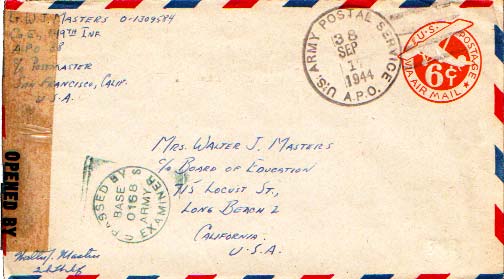 Lt. W. J. Masters O-1309584
Co. E, 149th Inf.
A.P.O. 38
c/o Postmaster
San Francisco, Calif.
U.S.A.
U.S. ARMY POSTAL SERVICE
38
SEP
17
1944
A.P.O.
U.S. POSTAGE
6¢
VIA AIR MAIL
Mrs. Walter J. Masters
c/o Board of Education
715 Locust St.,
Long Beach 2
California
U.S.A.
OPENED BY
PASSED BY
BASE
0168
ARMY
EXAMINER
Walter J. Masters